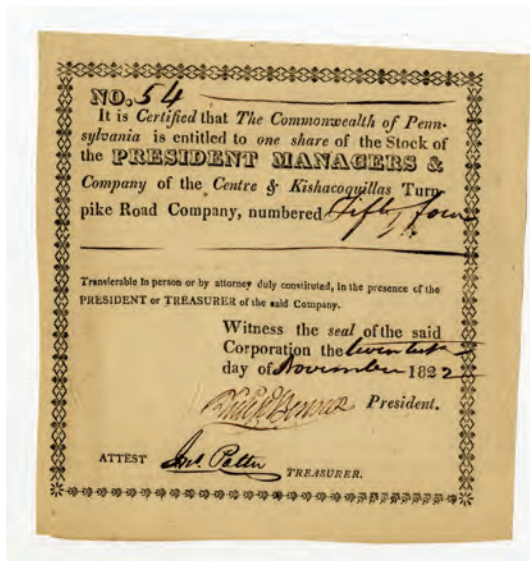 NO. 54
It is Certified that The Commonwealth of Penn-
sylvania is entitled to one share of the Stock of
the PRESIDENT MANAGERS &
Company of the Centre & Kishacoquillas Turn-
pike Road Company, numbered Fifty four
Transferable in person or by attorney duly constituted, in the presence of the
PRESIDENT or TREASURER of the said Company.
Witness the seal of the said
Corporation the
day of November 1822
President.
ATTEST Jno. Patton
TREASURER.